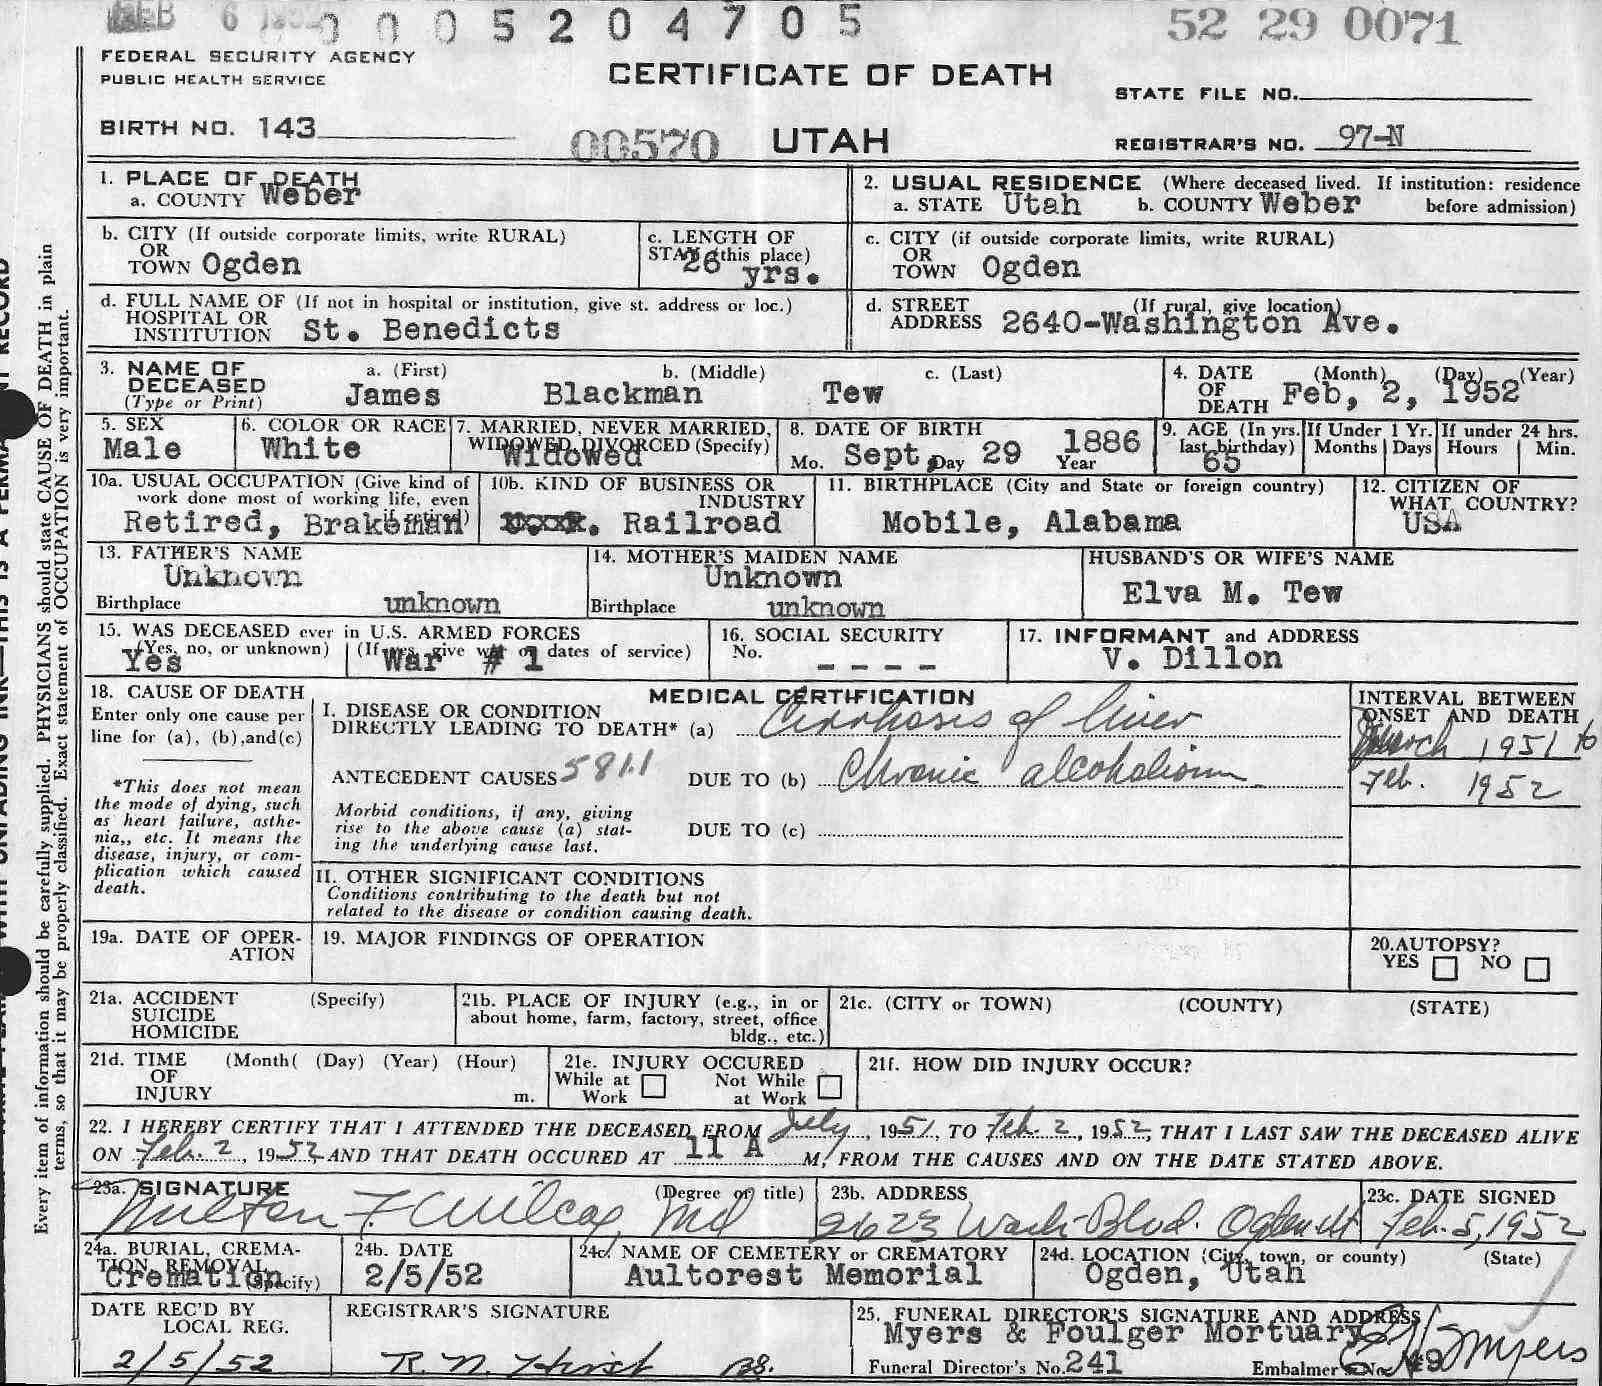 FEB 6 1952 0 0 0 5 2 0 4 7 0 5 52 29 0071
FEDERAL SECURITY AGENCY
PUBLIC HEALTH SERVICE
CERTIFICATE OF DEATH
STATE FILE NO.
BIRTH NO. 143
00570 UTAH
REGISTRAR'S NO. 97-N
1. PLACE OF DEATH
a. COUNTY Weber
2. USUAL RESIDENCE (Where deceased lived. If institution: residence
a. STATE Utah b. COUNTY Weber before admission)
b. CITY (If outside corporate limits, write RURAL)
OR
TOWN Ogden
c. LENGTH OF
STAY (this place)
26 yrs.
c. CITY (if outside corporate limits, write RURAL)
OR
TOWN Ogden
d. FULL NAME OF (If not in hospital or institution, give st. address or loc.)
HOSPITAL OR
INSTITUTION St. Benedicts
d. STREET (If rural, give location)
ADDRESS 2640-Washington Ave.
3. NAME OF a. (First) b. (Middle) c. (Last)
DECEASED
(Type or Print) James Blackman Tew
4. DATE (Month) (Day) (Year)
OF
DEATH Feb, 2, 1952
5. SEX
Male
6. COLOR OR RACE
White
7. MARRIED, NEVER MARRIED,
WIDOWED, DIVORCED (Specify)
Widowed
8. DATE OF BIRTH
Mo. Sept, Day 29 Year 1886
9. AGE (In yrs.
last birthday)
65
If Under 1 Yr.
Months Days
If under 24 hrs.
Hours Min.
10a. USUAL OCCUPATION (Give kind of
work done most of working life, even
if retired)
Retired, Brakeman
10b. KIND OF BUSINESS OR
INDUSTRY
Railroad
11. BIRTHPLACE (City and State or foreign country)
Mobile, Alabama
12. CITIZEN OF
WHAT COUNTRY?
USA
13. FATHER'S NAME
Unknown
Birthplace unknown
14. MOTHER'S MAIDEN NAME
Unknown
Birthplace unknown
HUSBAND'S OR WIFE'S NAME
Elva M. Tew
15. WAS DECEASED ever in U.S. ARMED FORCES
(Yes, no, or unknown) (If yes, give war or dates of service)
Yes War # 1
16. SOCIAL SECURITY
No. - - - -
17. INFORMANT and ADDRESS
V. Dillon
18. CAUSE OF DEATH
Enter only one cause per
line for (a), (b),and(c)
*This does not mean
the mode of dying, such
as heart failure, asthe-
nia,, etc. It means the
disease, injury, or com-
plication which caused
death.
MEDICAL CERTIFICATION
I. DISEASE OR CONDITION
DIRECTLY LEADING TO DEATH* (a) Cirrhosis of liver
ANTECEDENT CAUSES 581.1 DUE TO (b) Chronic alcoholism
Morbid conditions, if any, giving
rise to the above cause (a) stat-
ing the underlying cause last.
DUE TO (c)
INTERVAL BETWEEN
ONSET AND DEATH
March 1951 to
Feb. 1952
II. OTHER SIGNIFICANT CONDITIONS
Conditions contributing to the death but not
related to the disease or condition causing death.
19a. DATE OF OPER-
ATION
19. MAJOR FINDINGS OF OPERATION
20.AUTOPSY?
YES NO
21a. ACCIDENT (Specify)
SUICIDE
HOMICIDE
21b. PLACE OF INJURY (e.g., in or
about home, farm, factory, street, office
bldg., etc.)
21c. (CITY or TOWN) (COUNTY) (STATE)
21d. TIME (Month( (Day) (Year) (Hour)
OF
INJURY m.
21e. INJURY OCCURED
While at Not While
Work at Work
21f. HOW DID INJURY OCCUR?
22. I HEREBY CERTIFY THAT I ATTENDED THE DECEASED FROM July, 1951, TO Feb. 2, 1952, THAT I LAST SAW THE DECEASED ALIVE
ON Feb. 2, 1952 AND THAT DEATH OCCURED AT 11 A M, FROM THE CAUSES AND ON THE DATE STATED ABOVE.
23a. SIGNATURE (Degree or title)
Milton F. Wilcox, MD
23b. ADDRESS
2623 Wash Blvd. Ogden Ut
23c. DATE SIGNED
Feb. 5, 1952
24a. BURIAL, CREMA-
TION, REMOVAL
(Specify)
Cremation
24b. DATE
2/5/52
24c. NAME OF CEMETERY or CREMATORY
Aultorest Memorial
24d. LOCATION (City, town, or county) (State)
Ogden, Utah
DATE REC'D BY
LOCAL REG.
2/5/52
REGISTRAR'S SIGNATURE
R. N. Hirst
25. FUNERAL DIRECTOR'S SIGNATURE AND ADDRESS
Myers & Foulger Mortuary
Myers
Funeral Director's No.241 Embalmer's No.
Every item of information should be carefully supplied. PHYSICIANS should state CAUSE OF DEATH in plain
terms, so that it may be properly classified. Exact statement of OCCUPATION is very important.